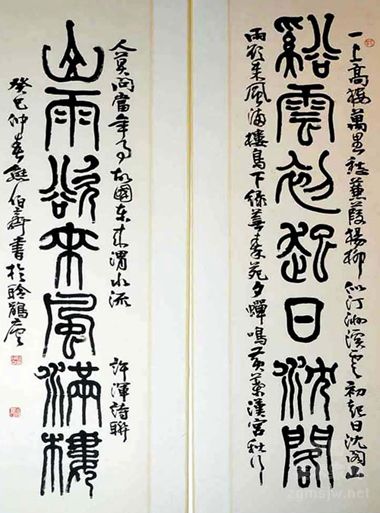 一上高楼萬里愁蒹葭楊柳似汀洲溪雲初起日沈閣山
谿雲初起日沈閣
雨欲来風满樓鳥下绿蕪秦苑夕蟬鳴黄葉漢宫秋行
人莫問當年事故國东来渭水流 許渾詩聯
山雨欲来風滿樓
癸巳仲春熊伯齊書於聆鵑
zgmsjw.net